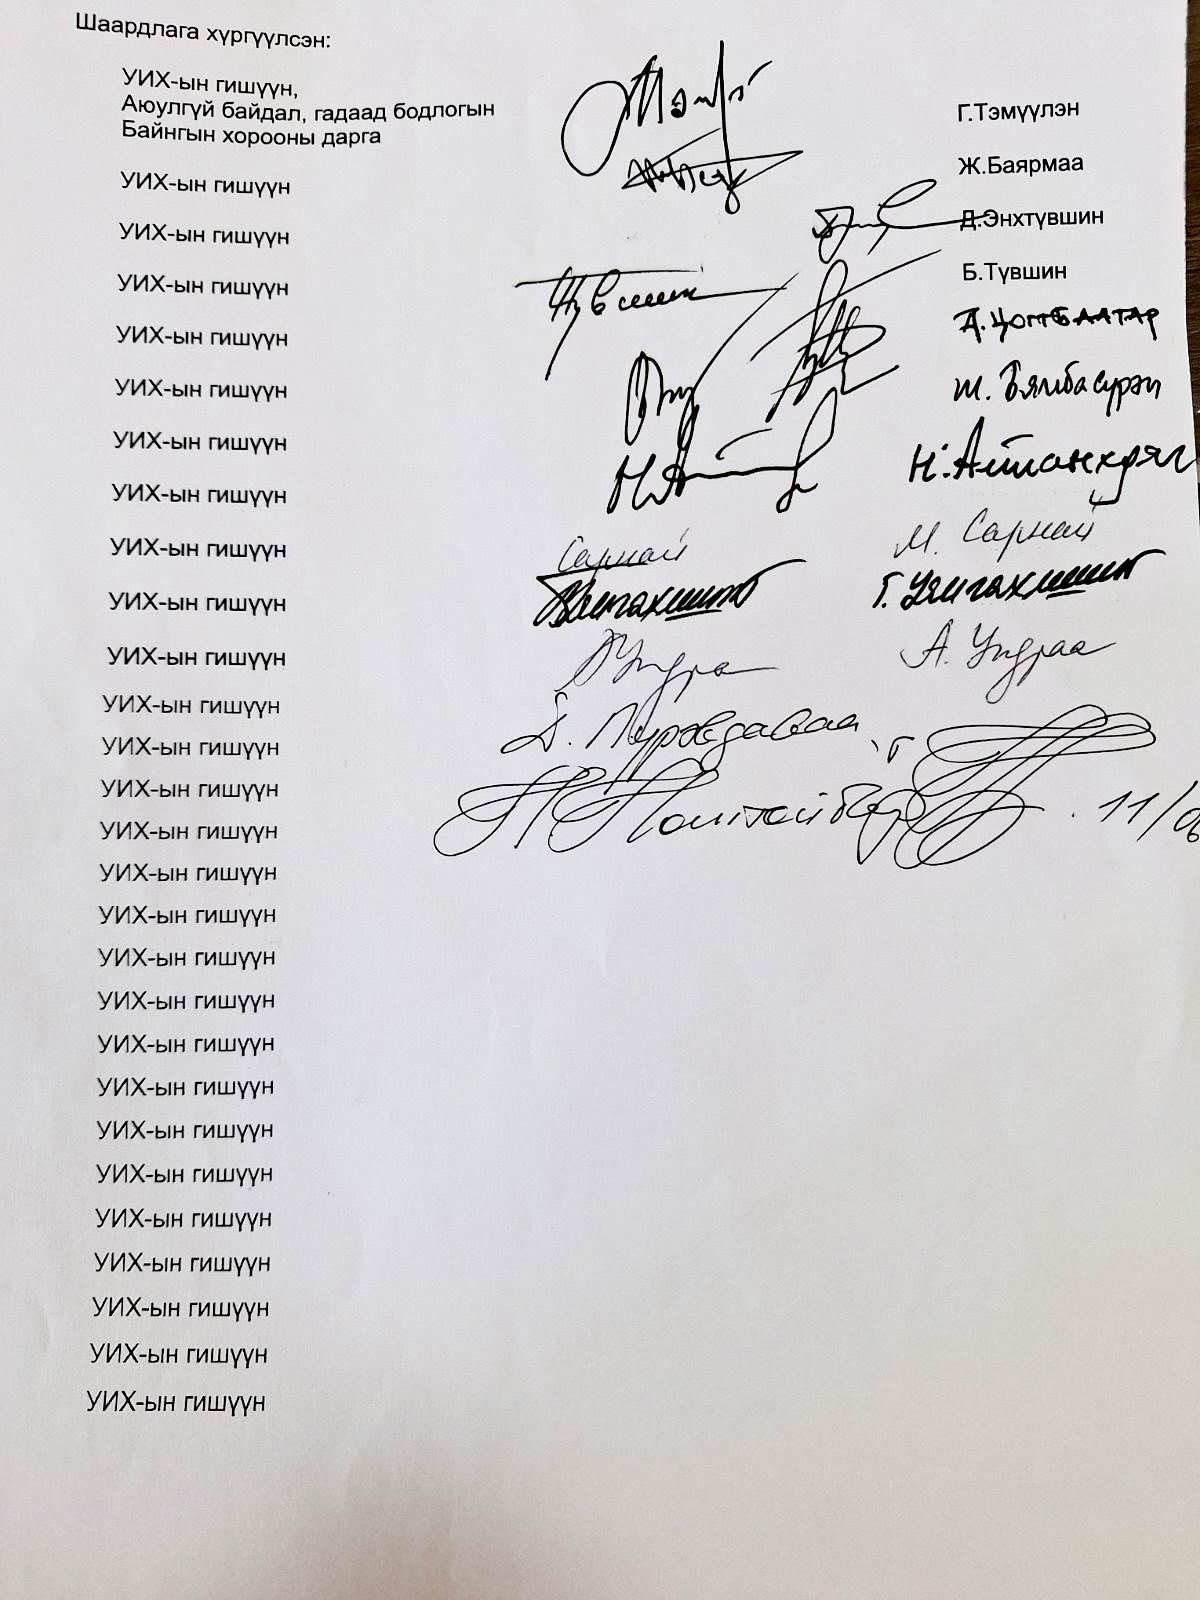 Шаардлага хүргүүлсэн:
УИХ-ын гишүүн,
Аюулгүй байдал, гадаад бодлогын
Байнгын хорооны дарга
Г.Тэмүүлэн
УИХ-ын гишүүн Ж.Баярмаа
УИХ-ын гишүүн Д.Энхтүвшин
УИХ-ын гишүүн Түвшин Б.Түвшин
УИХ-ын гишүүн Д.Цогтбаатар
УИХ-ын гишүүн Ж. Бямбасүрэн
УИХ-ын гишүүн
УИХ-ын гишүүн Н.Алтанхуяг
УИХ-ын гишүүн Сарнай М. Сарнай
УИХ-ын гишүүн Уянгахишиг Г. Уянгахишиг
УИХ-ын гишүүн Ундраа А. Ундраа
УИХ-ын гишүүн
УИХ-ын гишүүн Д. Пүрэвдаваа
УИХ-ын гишүүн
УИХ-ын гишүүн 11/06
УИХ-ын гишүүн
УИХ-ын гишүүн
УИХ-ын гишүүн
УИХ-ын гишүүн
УИХ-ын гишүүн
УИХ-ын гишүүн
УИХ-ын гишүүн
УИХ-ын гишүүн
УИХ-ын гишүүн
УИХ-ын гишүүн
УИХ-ын гишүүн
УИХ-ын гишүүн
УИХ-ын гишүүн